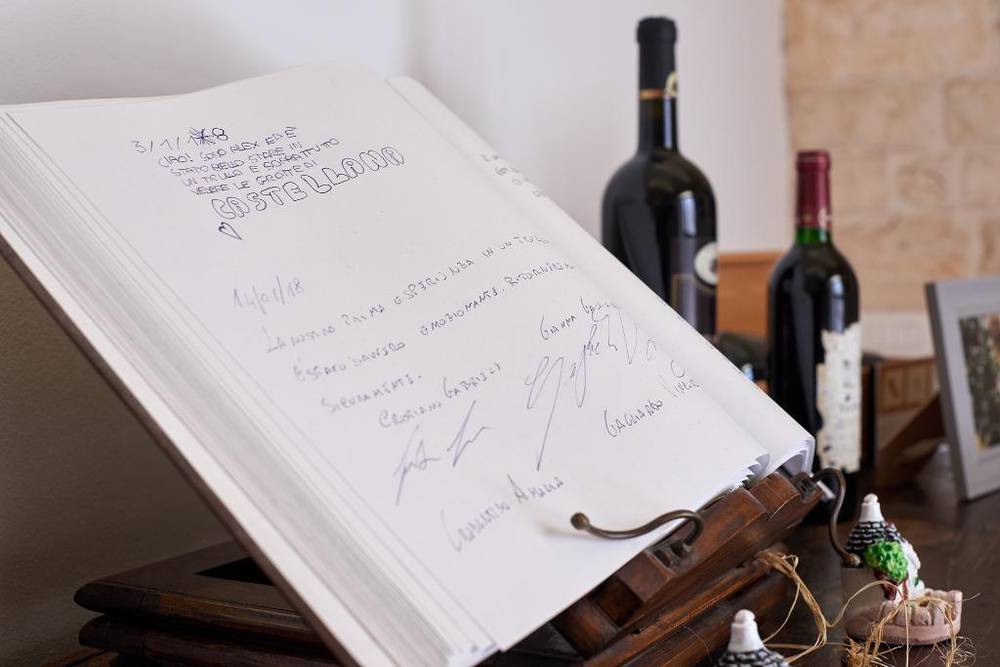 3/1/18
CIAO! SONO ALEX ED È
STATO BELLO STARE IN
UN TRULLO E SOPRATTUTTO
VEDERE LE GROTTE DI
CASTELLANA
14/01/18
LA NOSTRA PRIMA ESPERIENZA IN UN TRULLO
È STATO DAVVERO EMOZIONANTE. RITORNEREMO
SICURAMENTE.
CRISTIANO GABRIELI
GIANNA
GAGLIARDO
AMALIA